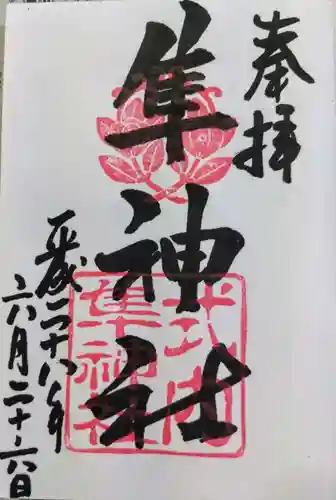 奉拝
隼神社
平成二十八年
六月二十六日
元武隈
隼神社